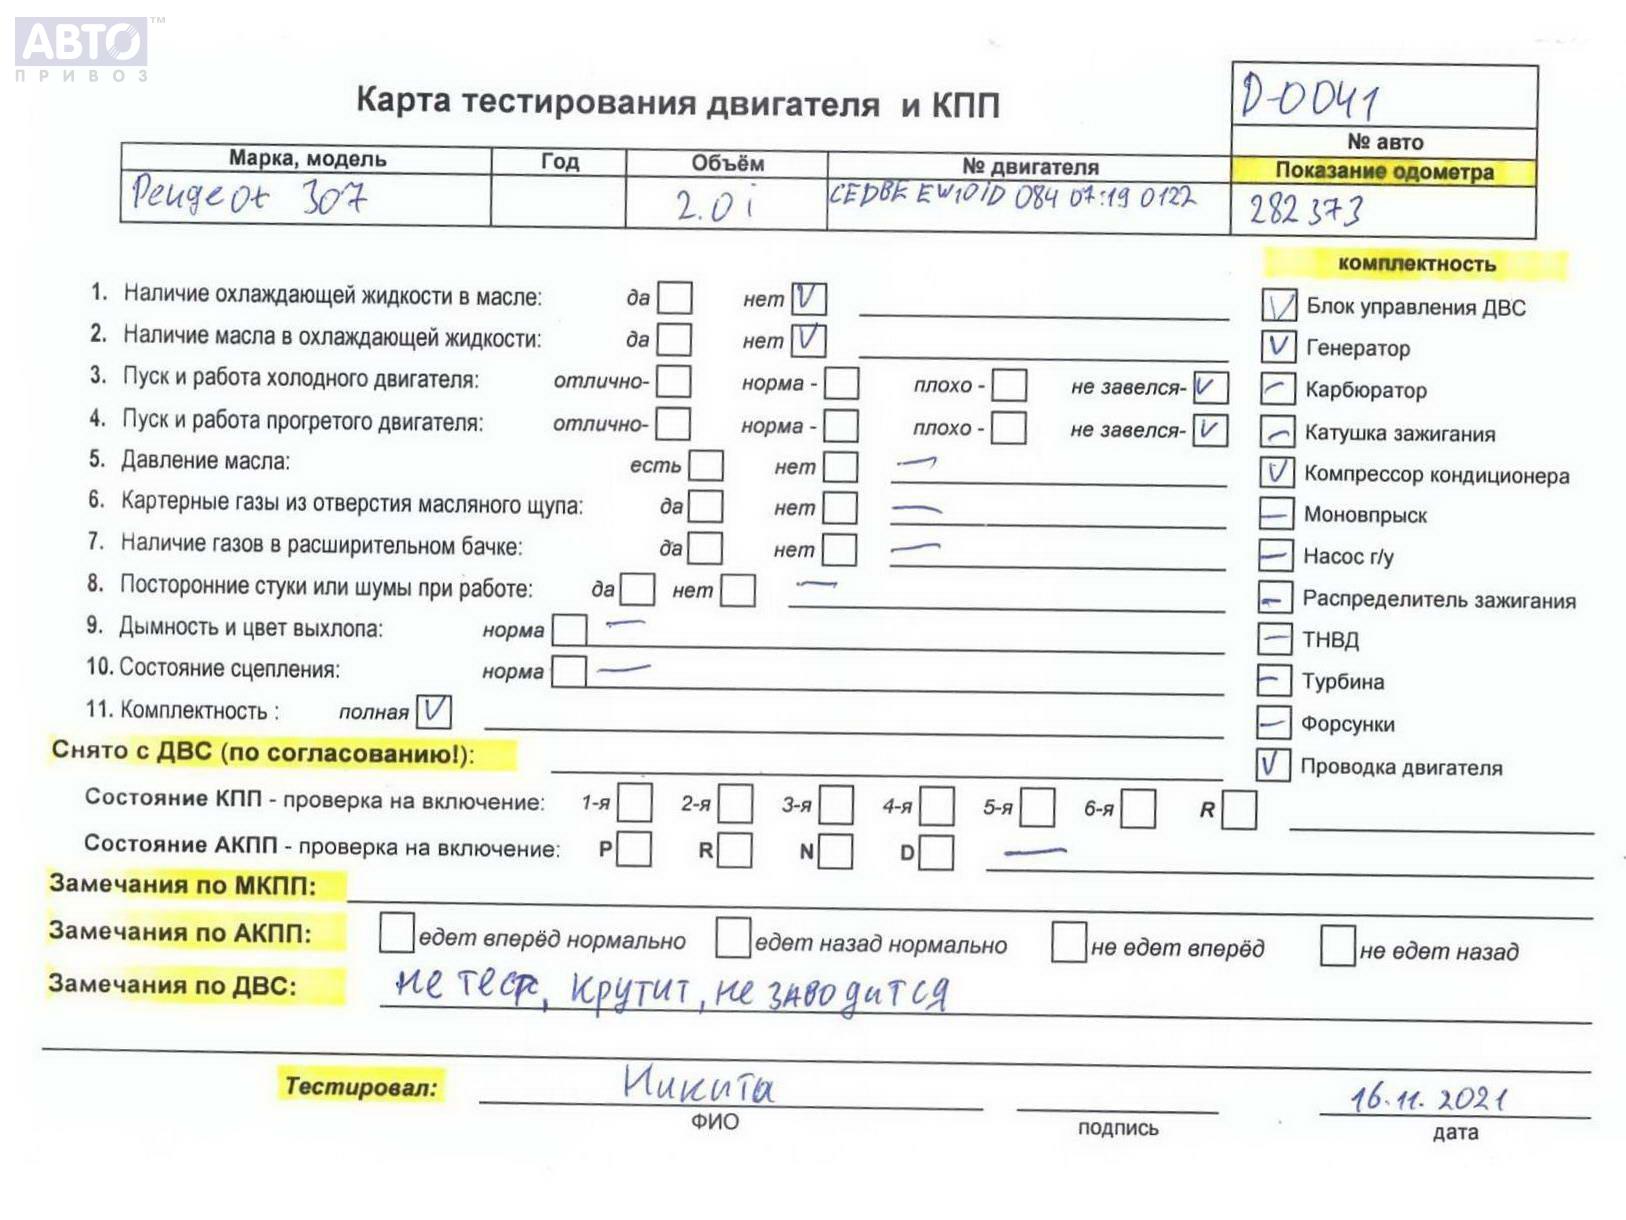 АВТО™
ПРИВОЗ
Карта тестирования двигателя и КПП
D-0041
№ авто
Марка, модель Год Объём № двигателя Показание одометра
Peugeot 307 2.0i CEDBE EW10JD 084 07:19 0122 282373
комплектность
1. Наличие охлаждающей жидкости в масле: да нет V
Блок управления ДВС V
2. Наличие масла в охлаждающей жидкости: да нет V
Генератор V
3. Пуск и работа холодного двигателя: отлично- норма - плохо - не завелся- V
Карбюратор –
4. Пуск и работа прогретого двигателя: отлично- норма - плохо - не завелся- V
Катушка зажигания –
5. Давление масла: есть нет –
Компрессор кондиционера V
6. Картерные газы из отверстия масляного щупа: да нет –
Моновпрыск –
7. Наличие газов в расширительном бачке: да нет –
Насос г/у –
8. Посторонние стуки или шумы при работе: да нет –
Распределитель зажигания –
9. Дымность и цвет выхлопа: норма –
ТНВД –
10. Состояние сцепления: норма –
Турбина –
11. Комплектность : полная V
Форсунки –
Снято с ДВС (по согласованию!):
Проводка двигателя V
Состояние КПП - проверка на включение: 1-я 2-я 3-я 4-я 5-я 6-я R
Состояние АКПП - проверка на включение: P R N D –
Замечания по МКПП:
Замечания по АКПП: едет вперёд нормально едет назад нормально не едет вперёд не едет назад
Замечания по ДВС: не тест, крутит, не заводится
Тестировал: Никита 16.11.2021
ФИО подпись дата